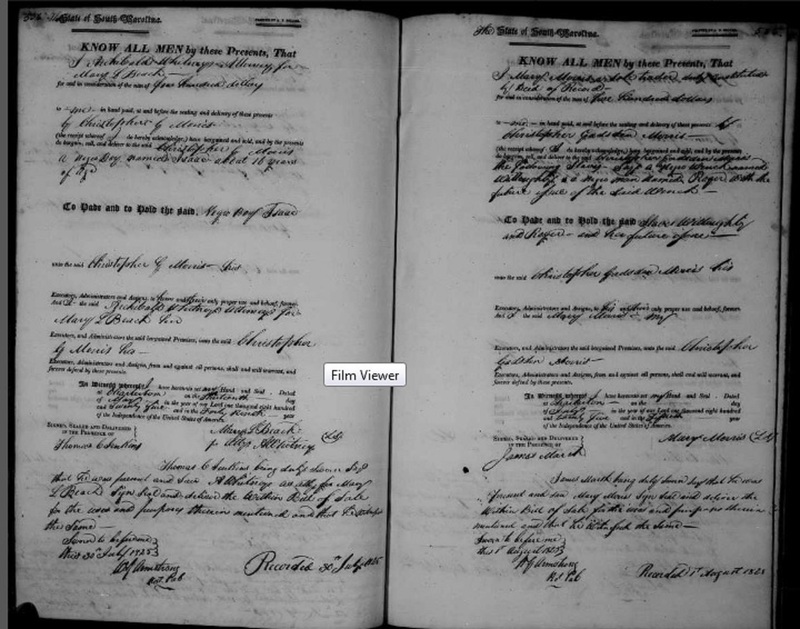 State of South-Carolina.
KNOW ALL MEN by these Presents, That
I Archibald Whitney Attorney for
Mary L Beach
for and in consideration of the sum of five hundred dollars
to me in hand paid, at and before the sealing and delivery of these presents
by Christopher G Morris
(the receipt whereof I do hereby acknowledge,) have bargained and sold, and by these presents
do bargain, sell, and deliver to the said Christopher G Morris
a Negro Boy named Isaac about 16 years
of age
To Have and to Hold the said, Negro Boy Isaac
unto the said Christopher G Morris his
Executors, Administrators and Assigns, to his and their only proper use and behoof, forever.
And I the said Archibald Whitney Attorney for
Mary L Beach
Executors, and Administrators the said bargained Premises, unto the said Christopher
G Morris his
Executors, Administrators and Assigns, from and against all persons, shall and will warrant, and
forever defend by these presents.
In Witness whereof I have hereunto set my Hand and Seal. Dated
at Charleston on the day
of May in the year of our Lord one thousand eight hundred
and Twenty five and in the Forty year
of the Independence of the United States of America.
SIGNED, SEALED AND DELIVERED
IN THE PRESENCE OF
Mary L Beach
Thomas C Jenkins
A Whitney (LS)
Thomas C Jenkins being duly sworn says
that he was present and saw A Whitney as atty for Mary
L Beach sign seal and deliver the within Bill of Sale
for the uses and purposes therein mentioned and that he witnessed
the same
Sworn to before me
this 30 July 1825
W Armstrong
Not Pub
Recorded 30th July 1825
The State of South-Carolina.
KNOW ALL MEN by these Presents, That
I Mary Morris a sole trader duly constituted
by Deed of Record
for and in consideration of the sum of five hundred dollars
to me in hand paid, at and before the sealing and delivery of these presents by
Christopher Gadsden Morris
(the receipt whereof I do hereby acknowledge,) have bargained and sold, and by these presents
do bargain, sell, and deliver to the said Christopher Gadsden Morris
the following Slaves a Negro Wench named
Willoughby & a Negro man named Roger with the
future issue of the said Wench
To Have and to Hold the said Slaves Willoughby
and Roger and her future issue
unto the said Christopher Gadsden Morris his
Executors, Administrators and Assigns, to his and their only proper use and behoof, forever.
And I the said Mary Morris my
Executors, and Administrators the said bargained Premises, unto the said Christopher
Gadsden Morris
Executors, Administrators and Assigns, from and against all persons, shall and will warrant, and
forever defend by these presents.
In Witness whereof I have hereunto set my Hand and Seal. Dated
at Charleston on the day
of in the year of our Lord one thousand eight hundred
and Twenty five and in the year
of the Independence of the United States of America.
SIGNED, SEALED AND DELIVERED
IN THE PRESENCE OF
Mary Morris (LS)
James Marsh
James Marsh being duly sworn says that he was
present and saw Mary Morris sign seal and deliver the
within Bill of Sale for the uses and purposes therein
mentioned and that he witnessed the same
Sworn to before me
this 1st August 1825
W Armstrong
Not Pub
Recorded 1st August 1825
Film Viewer